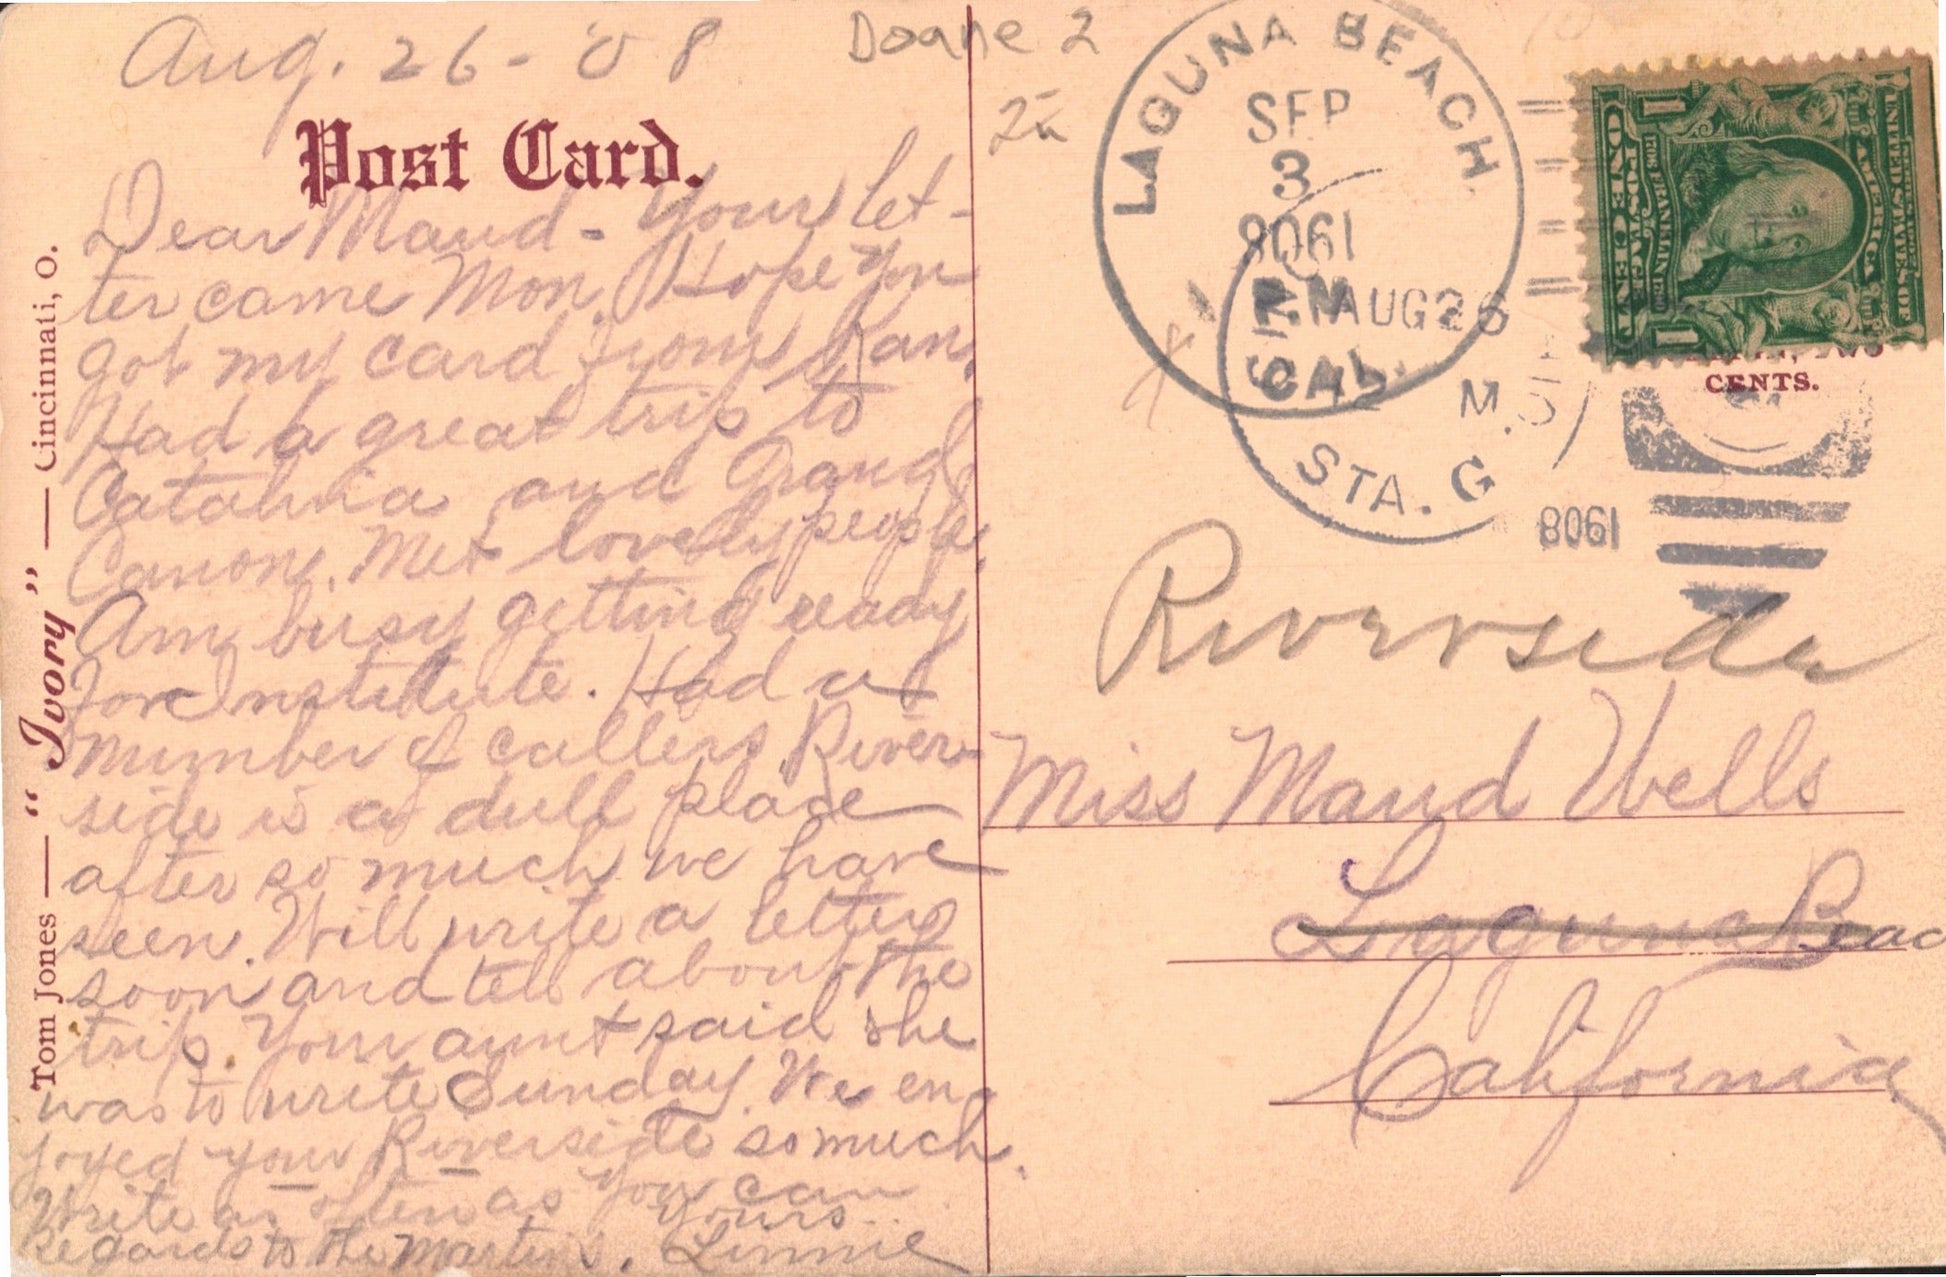 Aug. 26 - '08
Doane 2
Post Card.
Dear Maud - Your let-
ter came Mon. Hope you
got my card from
Had a great trip to
Catalina and Grand
Canon. Met lovely people
Am busy getting ready
for Institute. Had a
number of callers River-
side is a dull place
after so much we have
seen. Will write a letter
soon and tell about the
trip. Your aunt said she
was to write Sunday. We en-
joyed your Riverside so much.
Write as often as you can
Yours
Regards to the Martins. Linnie
Tom Jones — "Ivory" — Cincinnati, O.
LAGUNA BEACH
SEP
3
1908
CAL.
AUG 26
M.
STA. G
1908
UNITED STATES OF AMERICA
POSTAGE
ONE CENT
1
1
CENTS.
Riverside
Miss Maud Wells
Laguna Beac
California